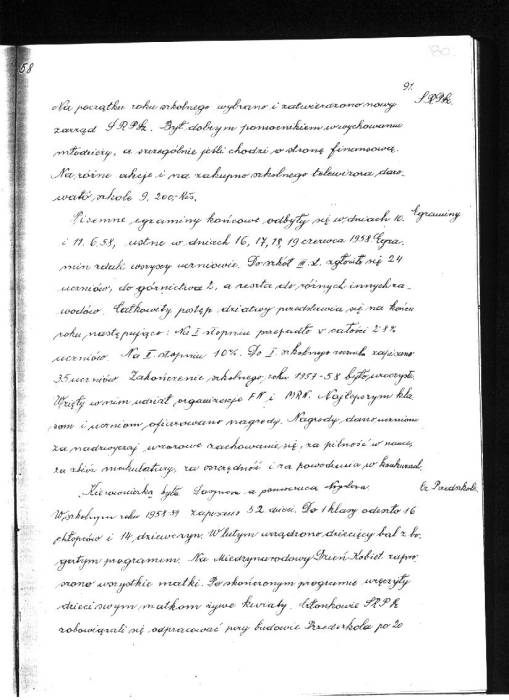 58
91.
Na początku roku szkolnego wybrano i zatwierdzono nowy SRPŠ.
zarząd SRPŠ. Był dobrym pomocnikiem w wychowaniu
młodzieży, a szczególnie jeśli chodzi o stronę finansową.
Na różne akcje i na zakupno szkolnego telewizora, daro
wało szkole 9.200,- Kčs.
Pisemne egzaminy końcowe odbyły się w dniach 10. Egzaminy
i 11.6.58, ustne w dniach 16, 17, 18, 19 czerwca 1958. Egza
min zdali wszyscy uczniowie. Do szkół III st. zgłosiło się 24
uczniów, do górnictwa 2, a reszta do różnych innych za-
wodów. Całkowity postęp dziatwy przedstawia się na końcu
roku następująco: Na I stopniu przepadło z całości 2.8%
uczniów. Na II stopniu 10%. Do I. szkolnego zapisano
35 uczniów. Zakończenie szkolnego roku 1957-58 było uroczyste.
Wzięły w nim udział organizacje FN i MRN. Najlepszym kla
som i uczniom ofiarowano nagrody. Nagrody dano uczniom
za nadzwyczaj wzorowe zachowanie się, za pilność w nauce,
za zbiór makulatury, za oszczędność i za powodzenia w konkursach.
Kierowniczką była a pomocnicą Cz. Przedszkole.
W szkolnym roku 1958-59 zapisano 52 dzieci. Do I klasy odeszło 16
chłopców i 14 dziewczyn. W lutym urządzono dziecięcy bal z bo-
gatym programem. Na Międzynarodowy Dzień Kobiet zapro-
szono wszystkie matki. Po skończonym programie wręczyły
dzieci swym matkom żywe kwiaty. Członkowie SRPŠ
zobowiązali się odpracować przy budowie Przedszkola po 20